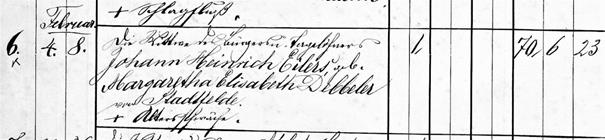 Februar.
+ Schlagfluß.
6. 4. 8. Die Wittwe des Bürgers u. Tagelöhners 1, 70, 6 23
Johann Heinrich Eilers, geb.
Margaretha Elisabeth Debbeler
von Stadtfelde.
+ Altersschwäche.